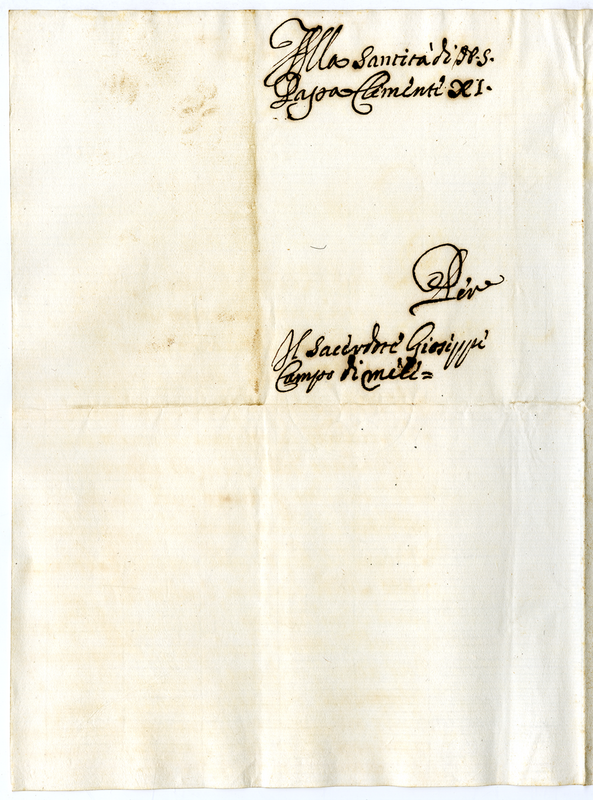 Alla Santità di N. S.
Papa Clementé XI.
Pér
Il Sacérdoté Gioséppé
Campo di Méli=